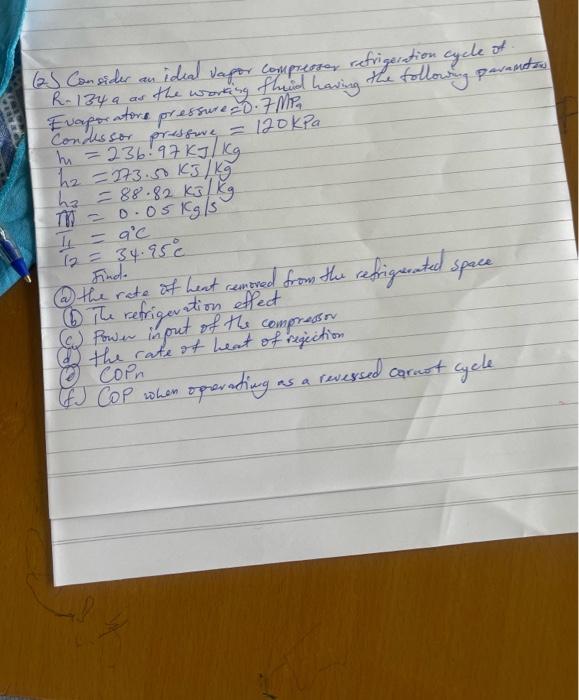 Q2) Consider an ideal vapor compressor refrigeration cycle of
R-134a as the working fluid having the following parameters
Evaporators pressure = 0.7 MPa
Condussor pressure = 120 KPa
h1 = 236.97 KJ/Kg
h2 = 273.50 KJ/Kg
h3 = 88.82 KJ/Kg
ṁ = 0.05 Kg/s
T1 = 9°C
T2 = 34.95°C
Find.
(a) the rate of heat removed from the refrigerated space
(b) The refrigeration effect
(c) Power input of the compressor
(d) the rate of heat of rejection
(e) COPn
(f) COP when operating as a reversed carnot cycle